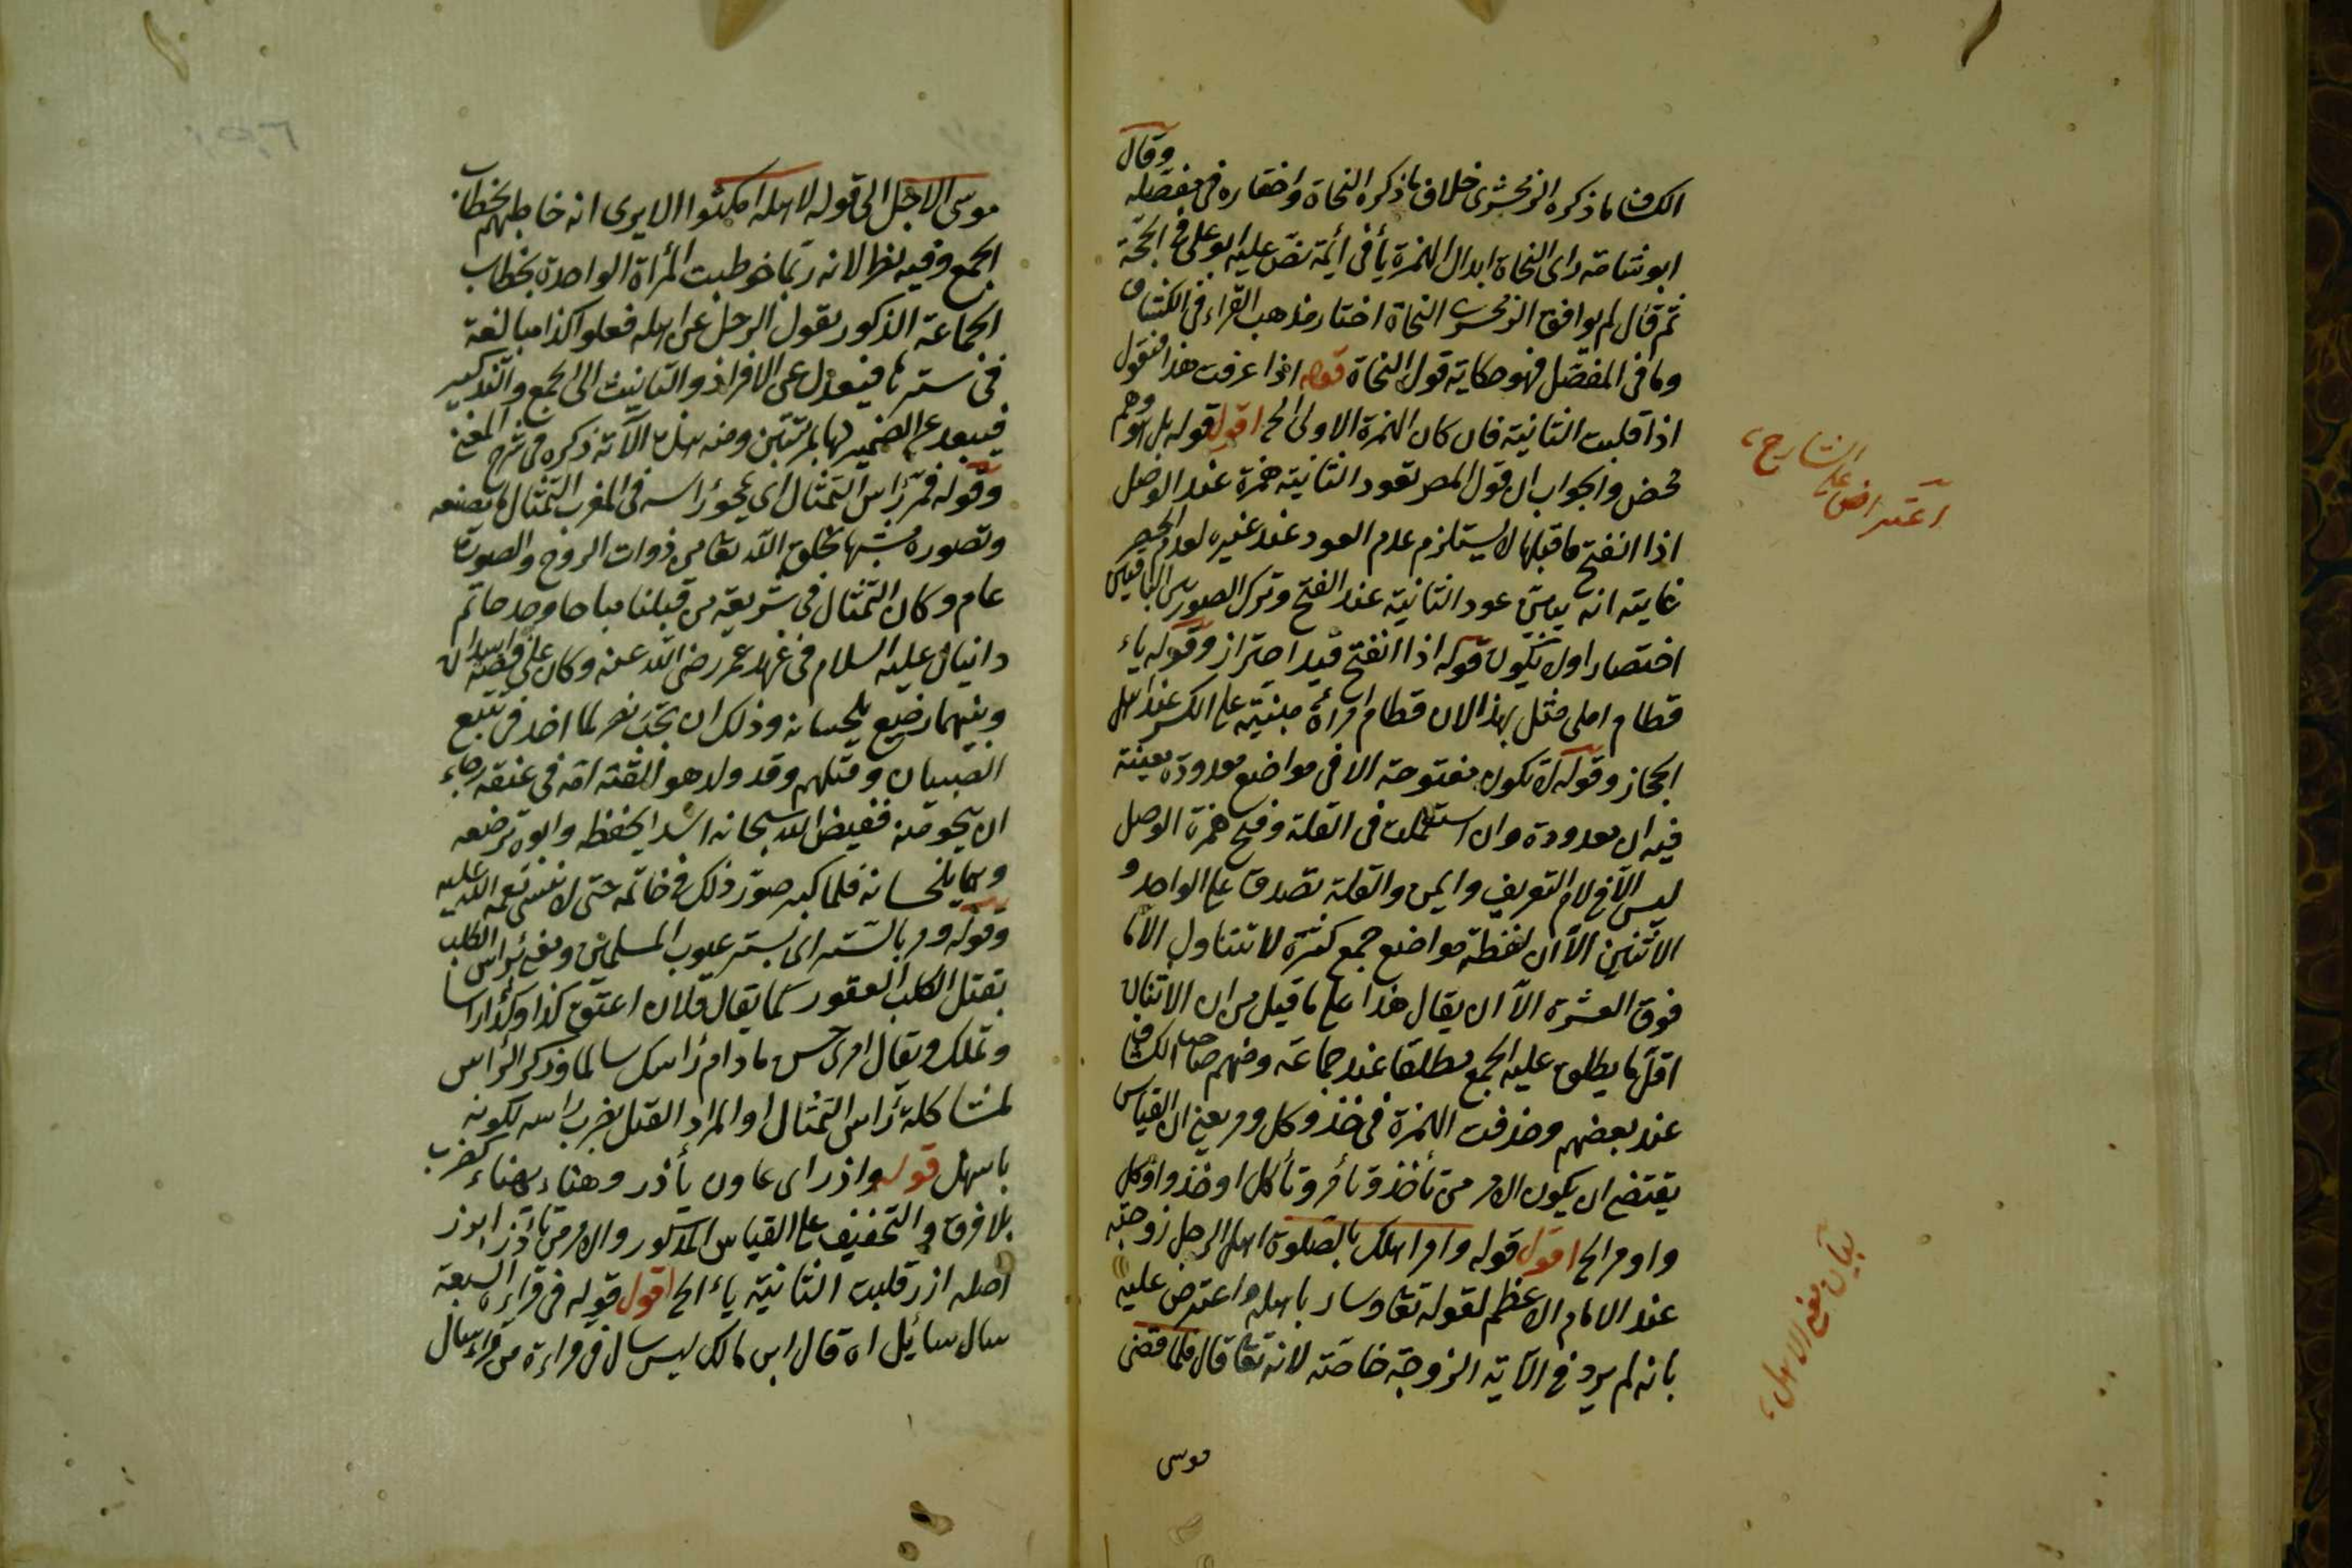 وقال
الكشاف ما ذكره الزمخشرى خلاف ما ذكره النحاة واختاره فى مفصله
ابو شامة راى النحاة ابدال الهمزة يأ فى أيمة نص عليه ابو على فى الحجة
ثم قال لم يوافق الزمخشرى النحاة اختار مذهب القراء فى الكشاف
وما فى المفصل فهو حكاية قول النحاة قوله اذا عرفت هذا فنقول
اذا قلبت الثانية فان كان الهمزة الاولى الح اقول قوله بل توهم
محض والجواب ان قول المص تعود الثانية همزة عند الوصل
اذا انفتح ما قبلها لا يستلزم عدم العود عند غيره لعدم الحصر
غايته انه بين عود الثانية عند الفتح وترك الصورتين الباقيتين
اختصارا ول يكون قوله اذا انفتح قيد احتراز وقوله ياء
قطام املى مثل بهذا لان قطام امرأة مبنية على الكسر عند اهل
الحجاز وقوله لا تكون مفتوحة الا فى مواضع معدودة معينة
فيه ان معدودة وان استعملت فى القلة وفتح همزة الوصل
ليس الا فى لام التعريف وايمن والقلة تصدق على الواحد و
الاثنين الا ان لفظة مواضع جمع كثرة لا تتناول الا ما
فوق العشرة الا ان يقال هذا على ما قيل من ان الاثنان
اقل ما يطلق عليه الجمع مطلقا عند جماعة ومنهم صاحب الكشاف
عند بعضهم وحذفت الهمزة فى خذ وكل ومر يعنى ان القياس
يقتضى ان يكون الامر من تأخذ وتأمر وتأكل اوخذ واوكل
واومر الح اقول قوله وامر اهلك بالصلوة اهل الرجل زوجته
عند الامام الاعظم لقوله تعا وسار باهله واعترض عليه
بانه لم يرد فى الآية الزوجة خاصة لانه تعا قال فلما قضى
موسى
اعتراض على الشارح
بيان معنى الاهل
موسى الاجل الى قوله لاهله امكثوا الا يرى انه خاطبهم بخطاب
الجمع وفيه نظر لانه ربما خوطبت المرأة الواحدة بخطاب
الجماعة الذكور يقول الرجل عن اهله فعلوا كذا مبالغة
فى سترها فيعدل عن الافراد والتانيث الى الجمع والتذكير
فيبعد عن الضمير لها بمرتبتين ومنه هذه الآية ذكره فى شرح المغنى
وقوله فمر برأس التمثال اى محو رأسه فى المغرب التمثال ما يصنعه
وتصوره مشبها بخلق الله تعا من ذوات الروح والصورة
عام وكان التمثال فى شريعة من قبلنا مباحا وجد خاتم
دانيال عليه السلام فى عهد عمر رضى الله عنه وكان على فصه اسدان
وبينهما رضيع يلحسانه وذلك ان بخت نصر لما اخذ فى تتبع
الصبيان وقتلهم وقد ولد هو القته امه فى غيضة رجاء
ان ينجو منه فقيض الله سبحانه اسدا يحفظه ولبوة ترضعه
وهما يلحسانه فلما كبر صور ذلك فى خاتمه حتى لا ينسى نعمة الله عليه
وقوله ومر بالستر اى بستر عيوب المسلمين ومعنى برأس الكلب
بقتل الكلب العقور كما يقال فلان اعتق كذا وكذا راسا
وتملك ويقال امرى حسن ما دام رأسك سالما وذكر الرأس
لمشاكلة رأس التمثال او المراد القتل بضرب راسه لكونه
باسهل قوله وازر اى عاون يأذر وهناء يهناء كضرب
بلا فرق والتخفيف على القياس المذكور والامر من تأزر ايزر
اصله ازر قلبت الثانية ياء الح اقول قوله فى قراءة السبعة
سال سائل اه قال ابن مالك ليس سال فى قراءة من قراء سال